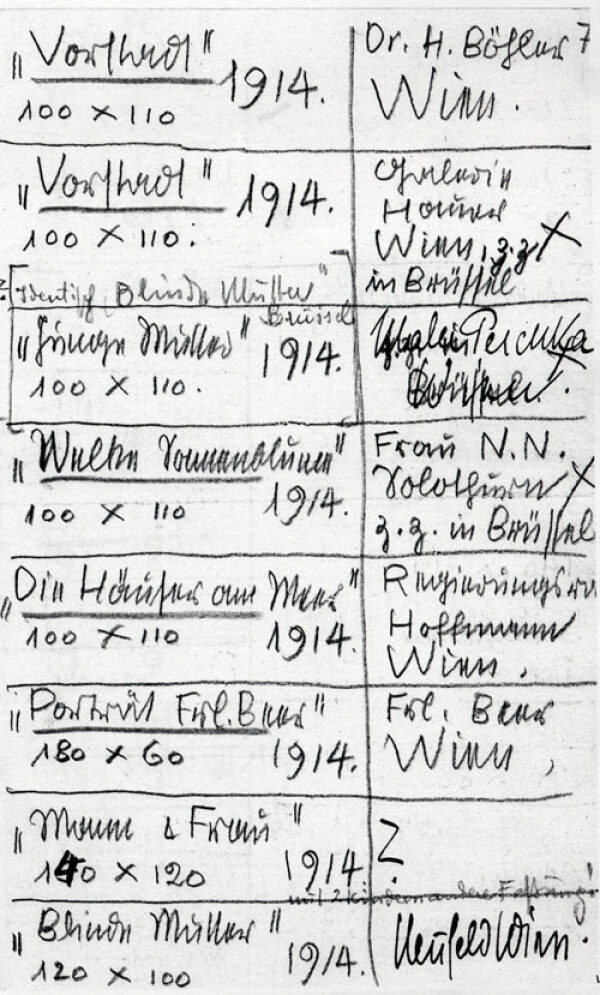 „Vorstadt"
1914.
100 × 110
Dr. H. Böhler 7
Wien.
„Vorstadt"
1914.
100 × 110.
Galerie
Hauer
Wien, z.z X
in Brüssel
Identisch „Blinde Mutter"
Brüssel
„Junge Mutter"
1914.
100 × 110.
Peschka
„Welke Sonnenblumen"
1914.
100 × 110
Frau N.N.
Solothurn X
z.z. in Brüssel
„Die Häuser am Meer"
100 × 110
1914.
Regierungsra
Hoffmann
Wien.
„Porträt Frl. Beer"
180 × 60
1914.
Frl. Beer
Wien,
„Mann & Frau"
140 × 120
1914.
?
mit 2 Kindern andere Fassung!
„Blinde Mutter"
1914.
120 × 100
Neufeld Wien.